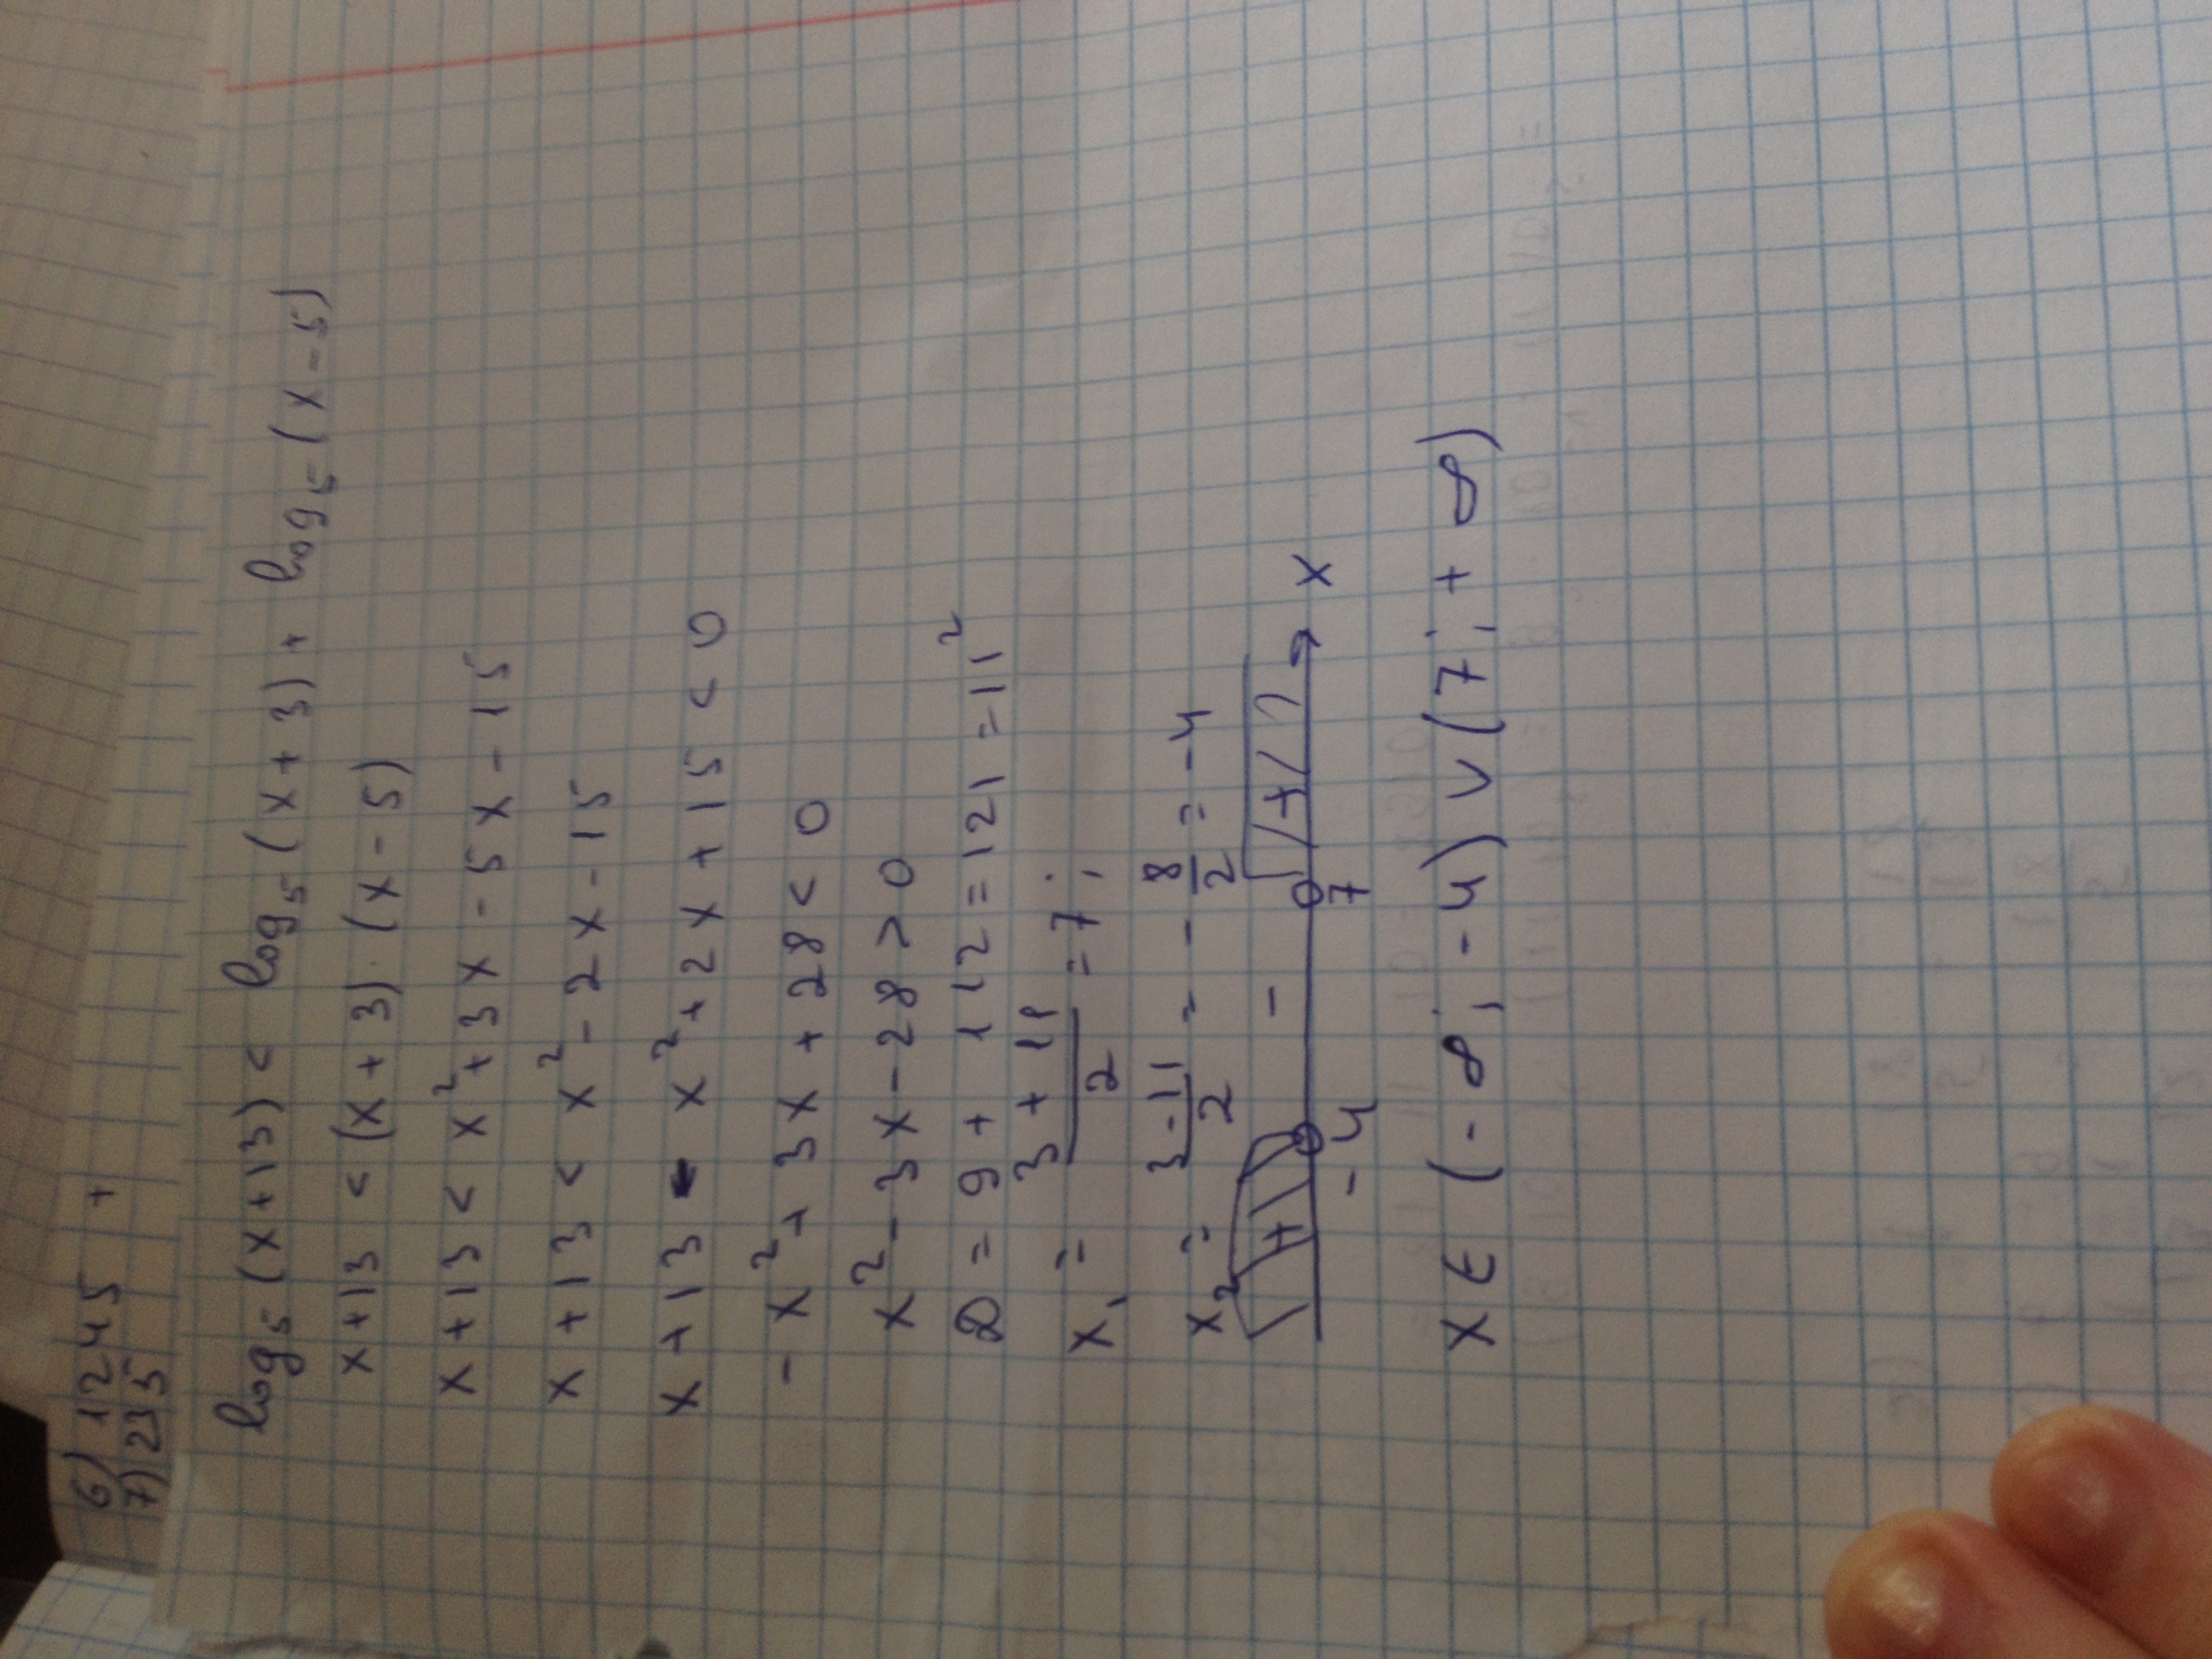 6) 1245 +
7) 235
log₅(x+13) < log₅(x+3) + log₅(x-5)
x+13 < (x+3)·(x-5)
x+13 < x²+3x-5x-15
x+13 < x²-2x-15
x+13 - x²+2x+15 < 0
-x²+3x+28 < 0
x²-3x-28 > 0
D = 9+112 = 121 = 11²
x₁ = (3+11)/2 = 7;
x₂ = (3-11)/2 = -8/2 = -4
+ - + x
-4 7
x ∈ (-∞; -4) ∪ (7; +∞)